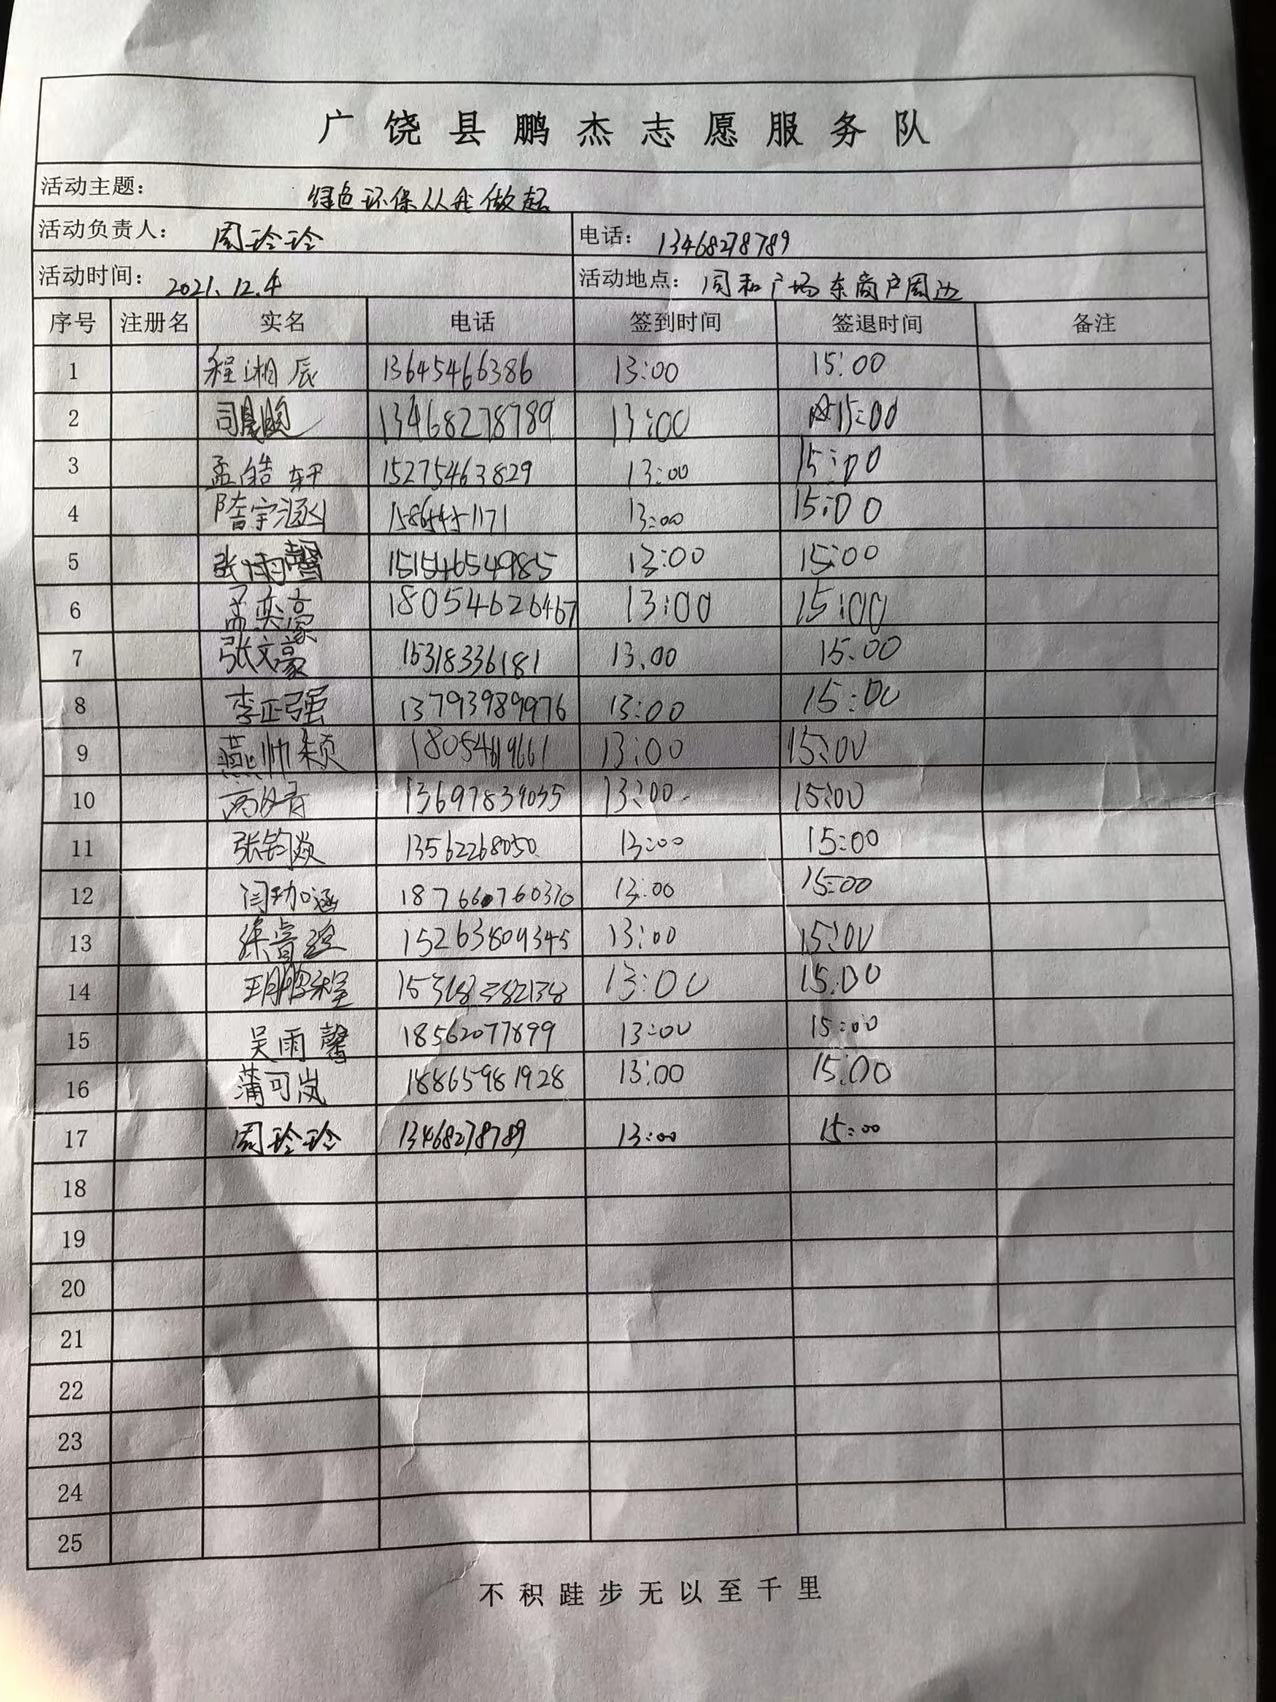 广饶县鹏杰志愿服务队
活动主题： 绿色环保从我做起
活动负责人： 周玲玲 电话： 13468278789
活动时间： 2021.12.4 活动地点： 同和广场东商户周边
序号 注册名 实名 电话 签到时间 签退时间 备注
1 程湘辰 13645466386 13:00 15:00
2 13468278789 13:00 15:00
3 孟皓轩 15275463829 13:00 15:00
4 隋宇涵 13:00 15:00
5 张雨馨 13:00 15:00
6 孟奕豪 18054626467 13:00 15:00
7 张文豪 15318336181 13.00 15.00
8 李正强 13793989976 13:00 15:00
9 燕帅颖 13:00 15:00
10 13:00 15:00
11 13562268050 13:00 15:00
12 闫珈涵 13:00 15:00
13 15263809345 13:00 15:00
14 13:00 15:00
15 吴雨馨 18562077899 13:00 15:00
16 蒲可岚 18865981928 13:00 15:00
17 周玲玲 13468278789 13:00 15:00
18
19
20
21
22
23
24
25
不积跬步无以至千里